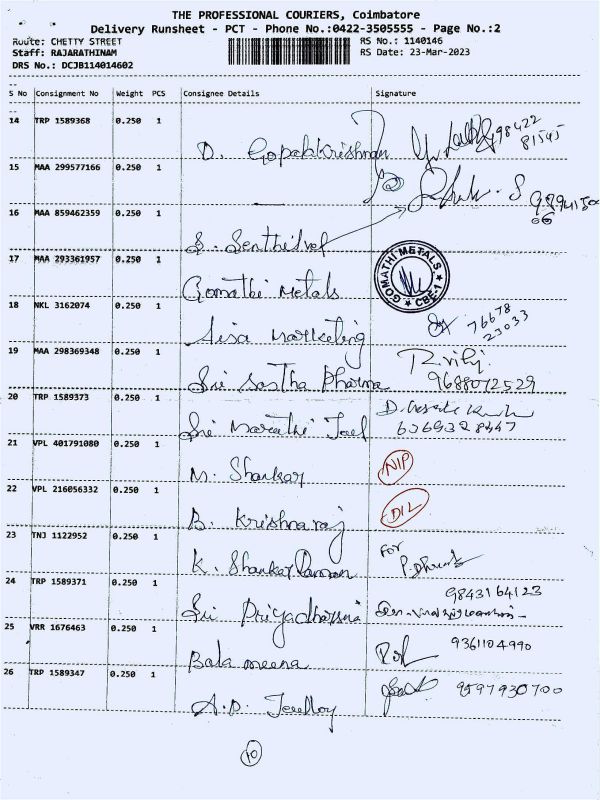 THE PROFESSIONAL COURIERS, Coimbatore
Delivery Runsheet - PCT - Phone No.:0422-3505555 - Page No.:2
Route: CHETTY STREET
RS No.: 1140146
Staff: RAJARATHINAM
RS Date: 23-Mar-2023
DRS No.: DCJB114014602
S No Consignment No Weight PCS Consignee Details Signature
14 TRP 1589368 0.250 1
D. Gopalakrishnan 98422
81545
15 MAA 299577166 0.250 1
16 MAA 859462359 0.250 1
S. Senthilvel
17 MAA 293361957 0.250 1
Gomathi Metals
GOMATHI METALS
CBE-1
18 NKL 3162074 0.250 1
Aisa Marketing 76678
23033
19 MAA 298369348 0.250 1
Sri Sastha Pharma 9688072529
20 TRP 1589373 0.250 1
Sri Maruthi
21 VPL 401791080 0.250 1
M. Shankar NIP
22 VPL 216056332 0.250 1
B. Krishnaraj D/L
23 TNJ 1122952 0.250 1
K. Shankar Raman For
24 TRP 1589371 0.250 1
Sri Priyadharsini 9843164123
25 VRR 1676463 0.250 1
Bala meena 9361104990
26 TRP 1589347 0.250 1
A.P. 9597930700
10